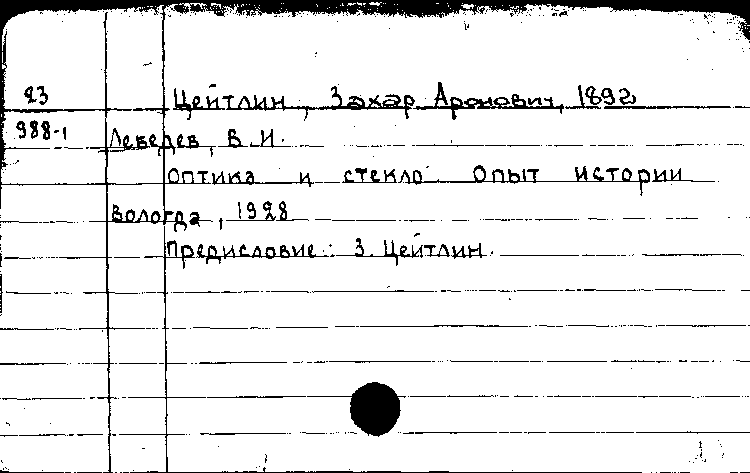 23 Цейтлин, Захар Аронович, 1892
988-1 Лебедев, В.И.
Оптика и стекло. Опыт истории
Вологда, 1928
Предисловие: З. Цейтлин.